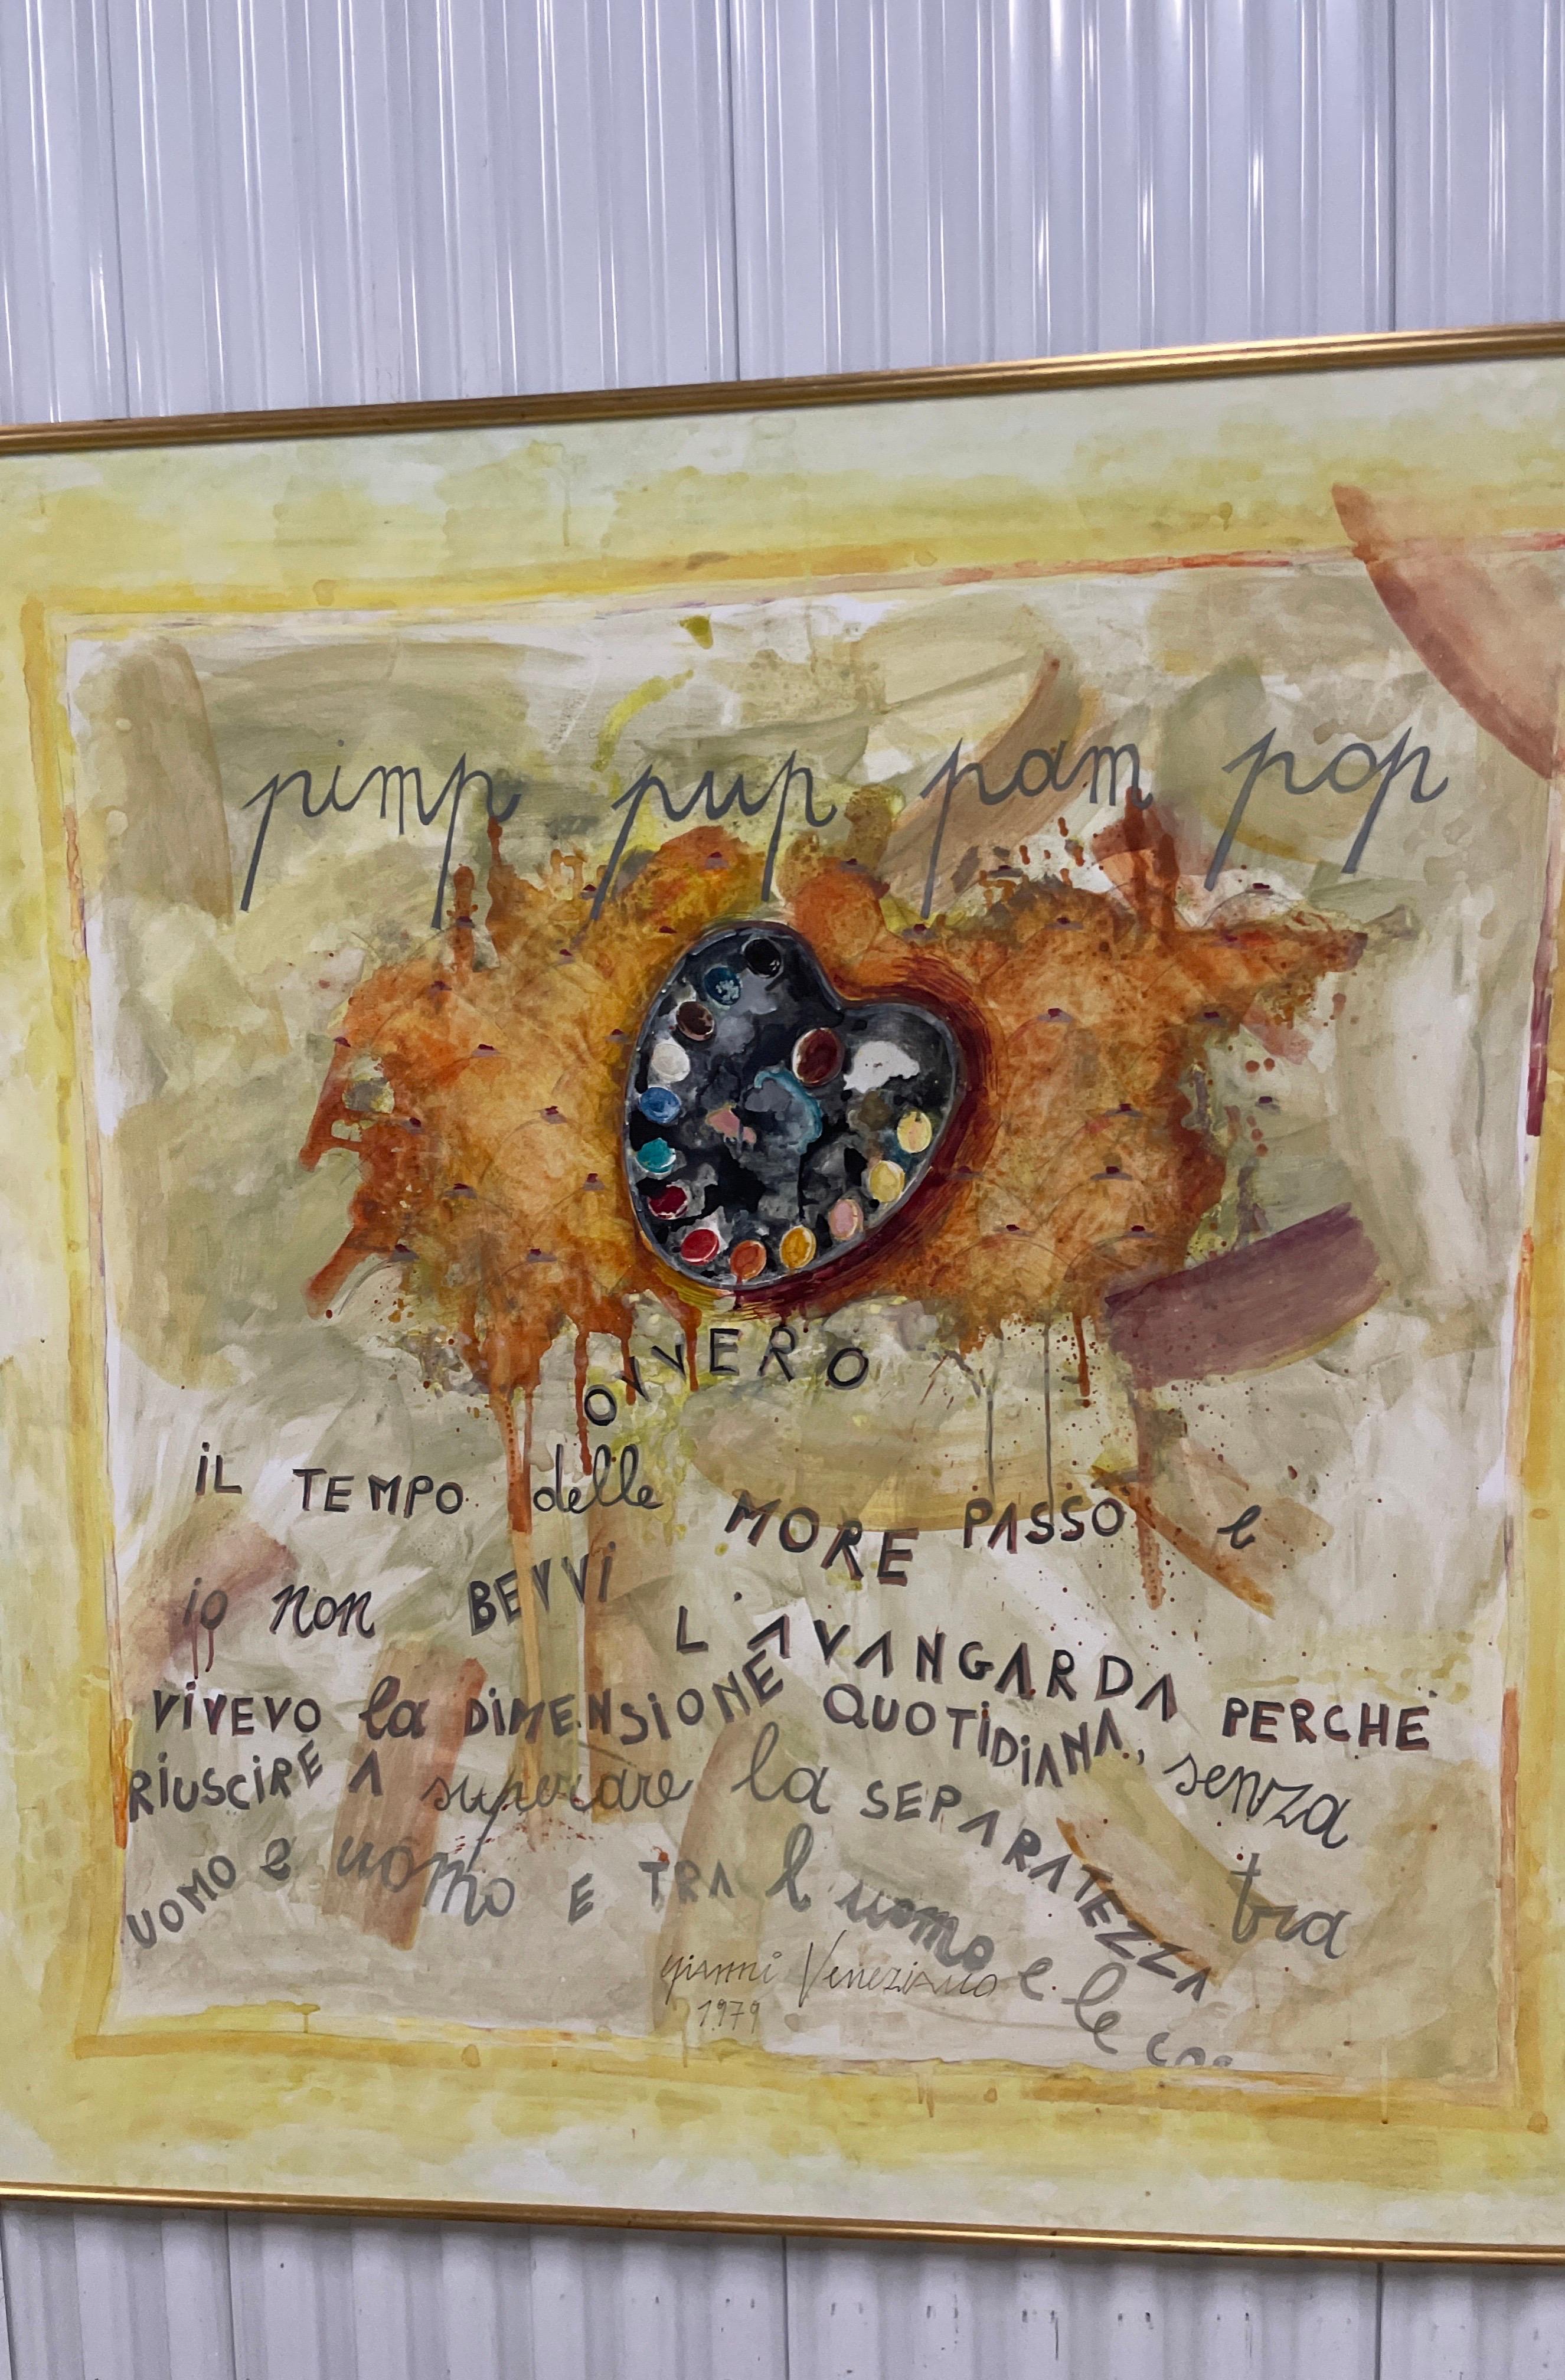 pimp pup pam pop
OVVERO
iL TEMPO delle MORE PASSO e
io non BEVVI L'AVANGARDA PERCHE
ViVEVO la DiMENSiONE QUOTiDiANA, senza
RiUSCiRE A superare la SEPARATEZZA tra
UOMO e uomo E TRA l'uomo e le co
gianni Veneziano
1979